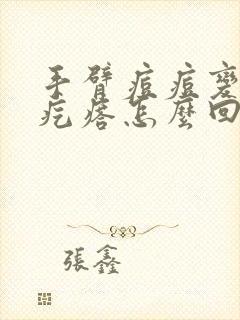 手臂痘痘變
疙瘩怎麼回
張鑫